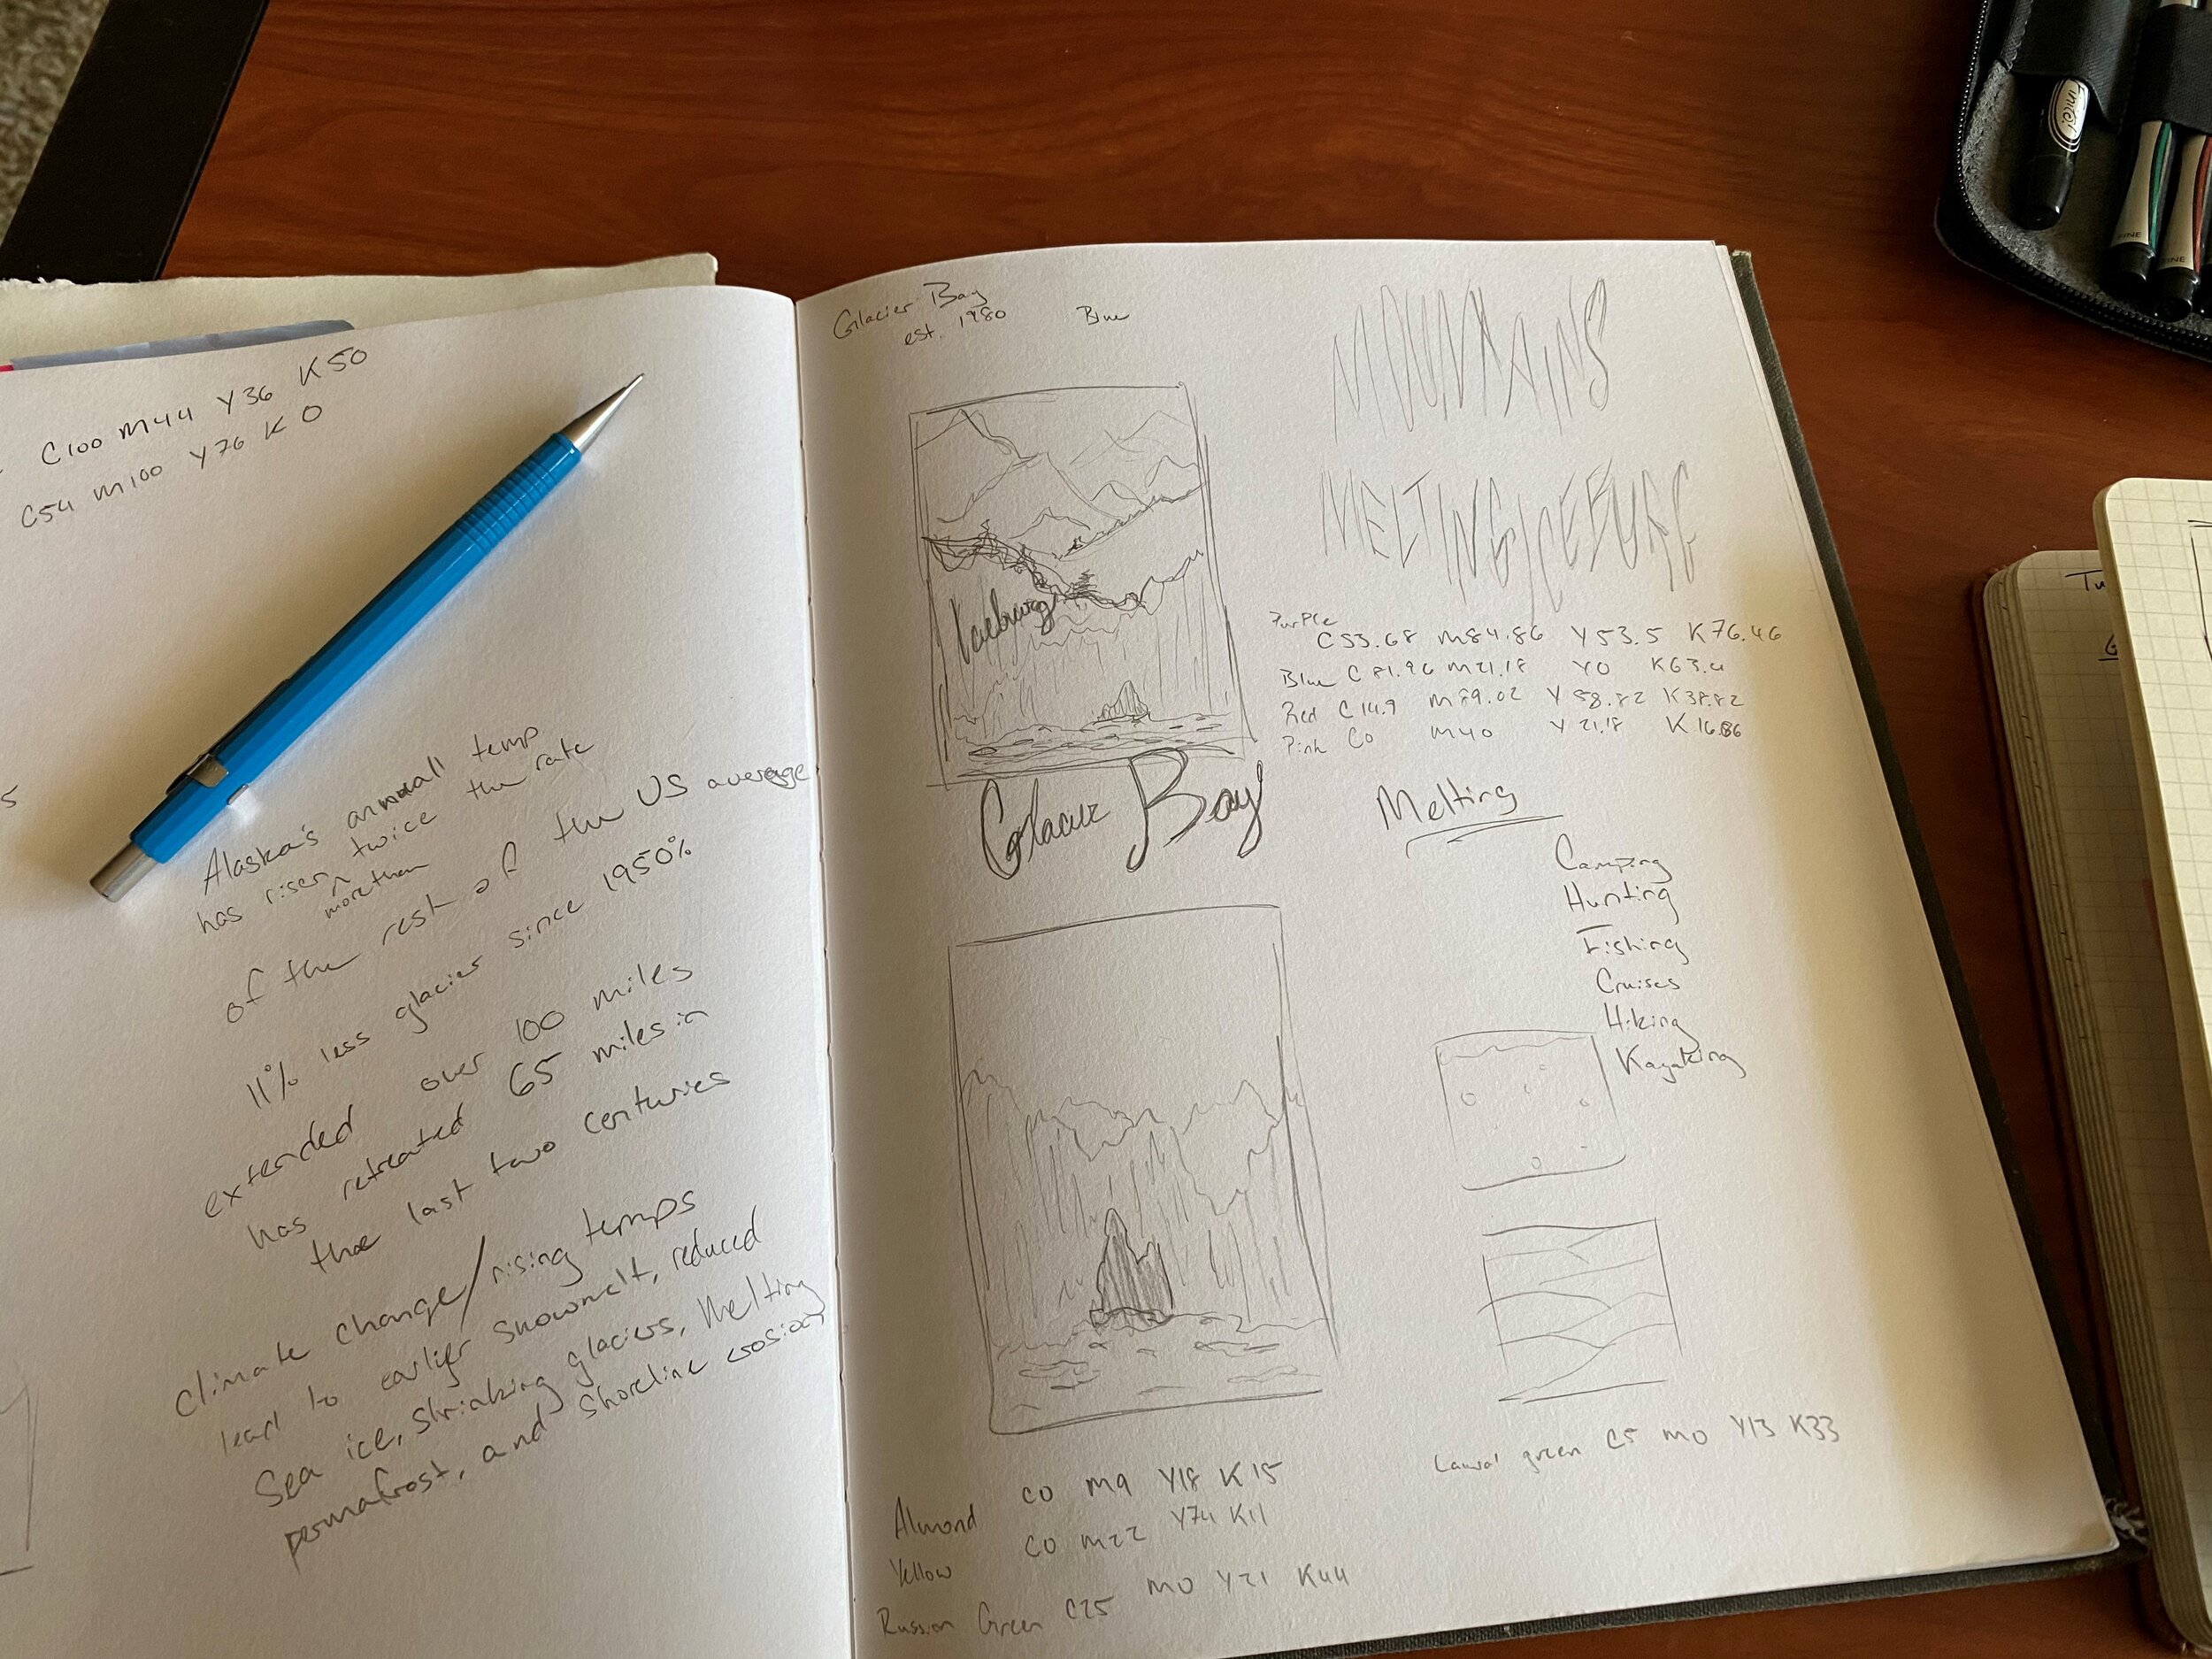 C100 M44 Y36 K50
C54 M100 Y76 K0
5
Alaska's annuall temp
has risen twice the rate
more than
of the rest of the US average
11% less glacier since 1950%
extended over 100 miles
has retreated 65 miles in
the last two centuries
climate change/rising temps
lead to earlier snowmelt, reduced
Sea ice, shrinking glaciers, Melting
permafrost, and shoreline erosion
Glacier Bay
est. 1980
Blue
MOUNTAINS
MELTING ICEBURG
Iceburg
Purple
C53.68 M84.86 Y53.5 K76.46
Blue C81.96 M21.18 Y0 K63.4
Red C14.9 M89.02 Y58.82 K38.82
Pink C0 M40 Y21.18 K16.86
Glacier Bay
Melting
Camping
Hunting
Fishing
Cruises
Hiking
Kayaking
Laural green C5 M0 Y13 K33
Almond C0 M9 Y18 K15
Yellow C0 M22 Y74 K11
Russian Green C25 M0 Y21 K44
FINE